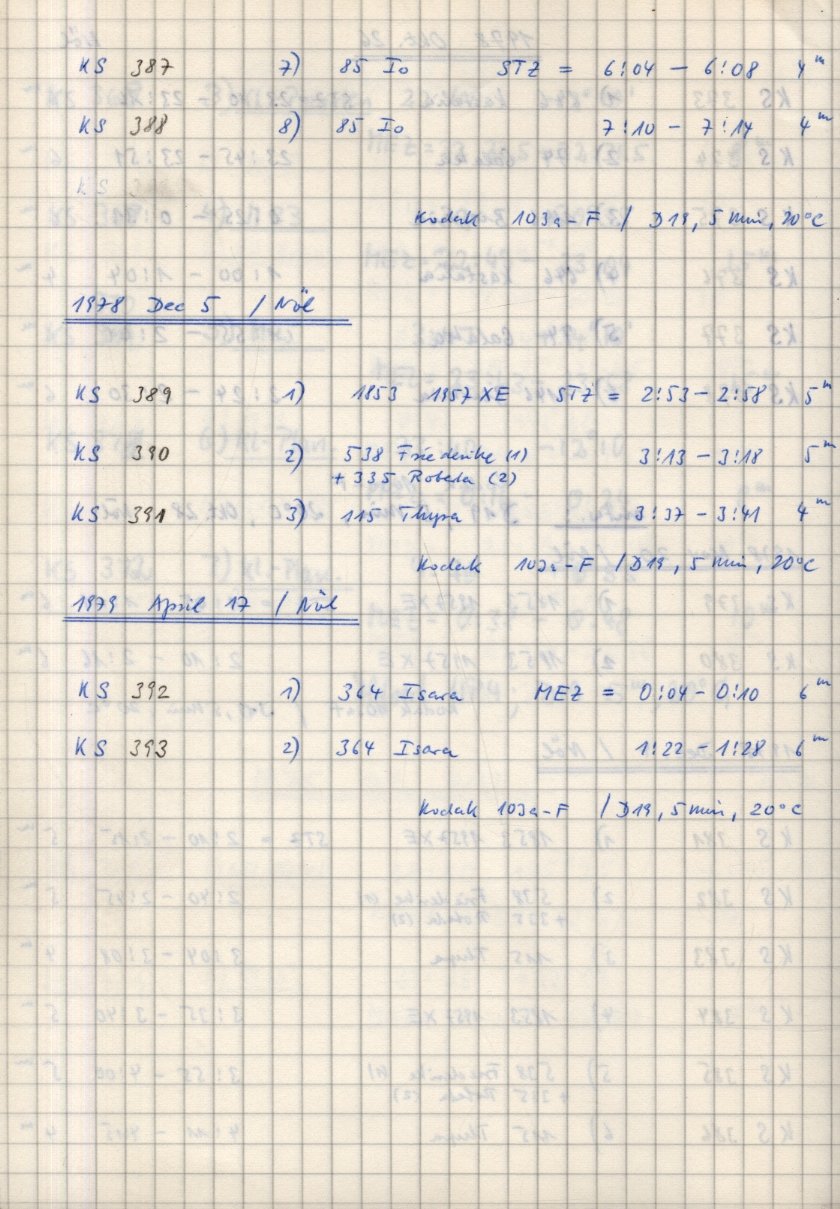 KS 387 7) 85 Io STZ = 6:04 – 6:08 4m
KS 388 8) 85 Io 7:10 – 7:14 4m
KS
Kodak 103a-F / D19, 5 min, 20°C
1978 Dec 5 / Nöl
KS 389 1) 1853 1957 XE STZ = 2:53 – 2:58 5m
KS 390 2) 538 Friederike (1) 3:13 – 3:18 5m
+ 335 Roberta (2)
KS 391 3) 115 Thyra 3:37 – 3:41 4m
Kodak 103a-F / D19, 5 min, 20°C
1979 April 17 / Nöl
KS 392 1) 364 Isara MEZ = 0:04 – 0:10 6m
KS 393 2) 364 Isara 1:22 – 1:28 6m
Kodak 103a-F / D19, 5 min, 20°C